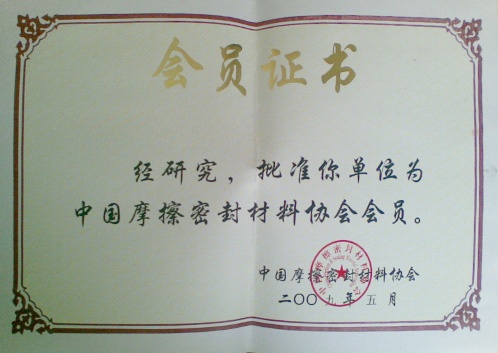 会员证书
经研究，批准你单位为
中国摩擦密封材料协会会员。
中国摩擦密封材料协会
二〇〇九年五月